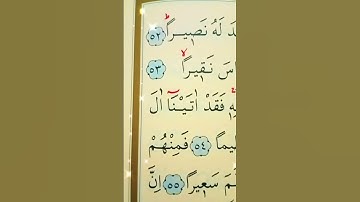 لَهُ نَصٖيراً ﴿٥٢﴾
نَقٖيراً ﴿٥٣﴾
فَقَدْ اٰتَيْنَٓا اٰلَ
﴿٥٤﴾ فَمِنْهُمْ
سَعٖيراً ﴿٥٥﴾ اِنَّ